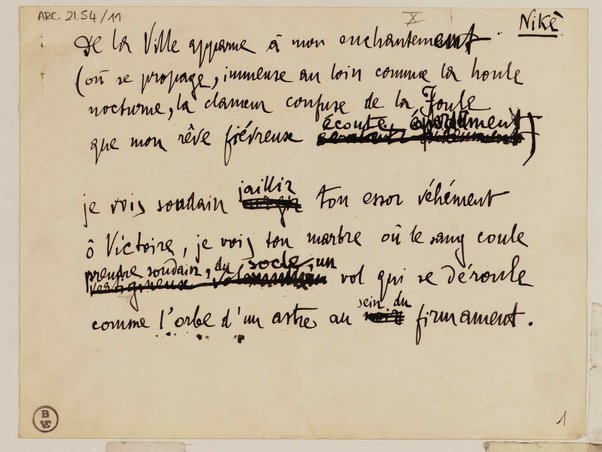 ARC. 21.54/11
X
Nikè
De la Ville apparue à mon enchantement
(où se propage, immense au loin comme la houle
nocturne, la clameur confuse de la Foule
que mon rêve fiévreux écoute, éperdument)
je vois soudain jaillir ton essor véhément
ô Victoire, je vois ton marbre où le sang coule
prendre soudain, du socle, un vol qui se déroule
comme l'orbe d'un astre au sein du firmament.
1